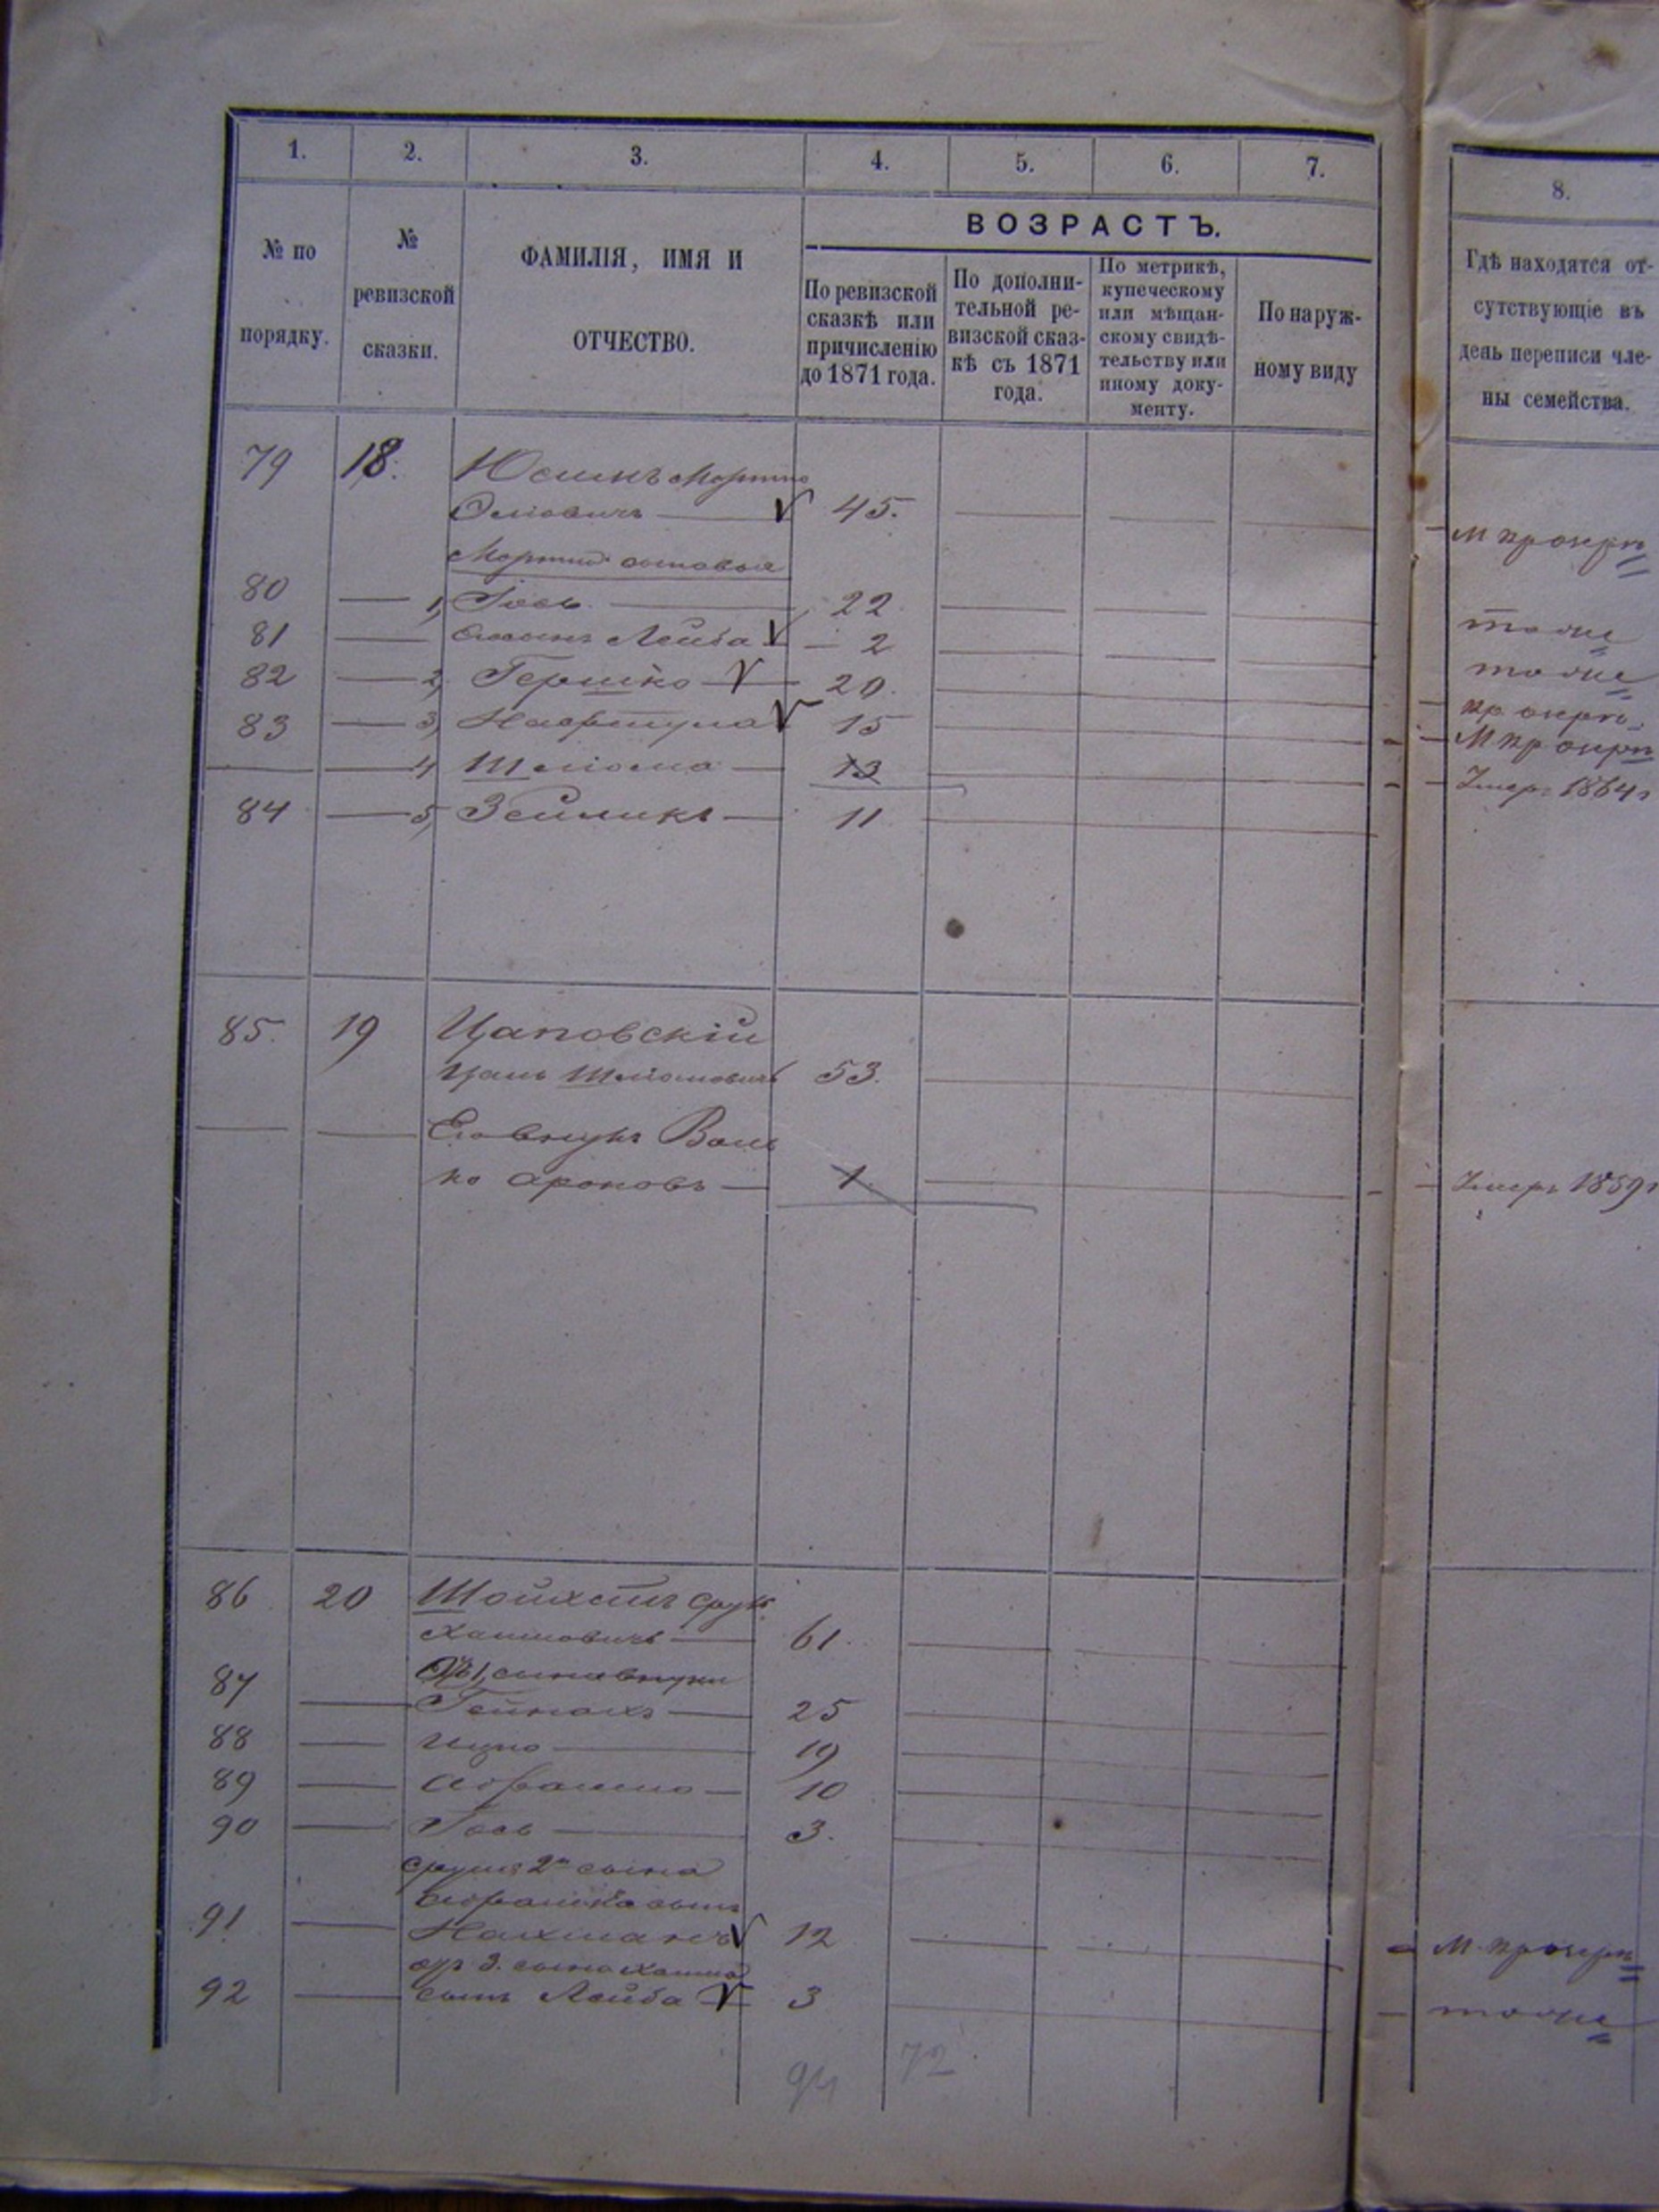 1. 2. 3. 4. 5. 6. 7. 8.
№ по порядку.
№ ревизской сказки.
ФАМИЛІЯ, ИМЯ И ОТЧЕСТВО.
ВОЗРАСТЪ.
По ревизской сказкѣ или причисленію до 1871 года.
По дополнительной ревизской сказкѣ съ 1871 года.
По метрикѣ, купеческому или мѣщанскому свидѣтельству или иному документу.
По наружному виду
Гдѣ находятся отсутствующіе въ день переписи члены семейства.
79 18.
45.
80 1, Гось 22
то же
81 Лейба 2
то же
82 2, Гершко 20.
83 3, 15
4 Шліома 13
Умеръ 1864 г
84 5, Зейликъ 11
85. 19 Цаповскій
Шліомовичъ 53.
Его внукъ Воль
ко Ароновъ 1.
Умеръ 1859 г
86 20 Шойхетъ Сруль
Хаимовичъ 61.
87
Гейнахъ 25
88 Ицко 19
89 Абрамко 10
90 Гось 3.
Сруля 2го сына
Абрамка сынъ
91 Нахманъ 12
3. сына Хаима
92 сынъ Лейба 3
то же
94 72